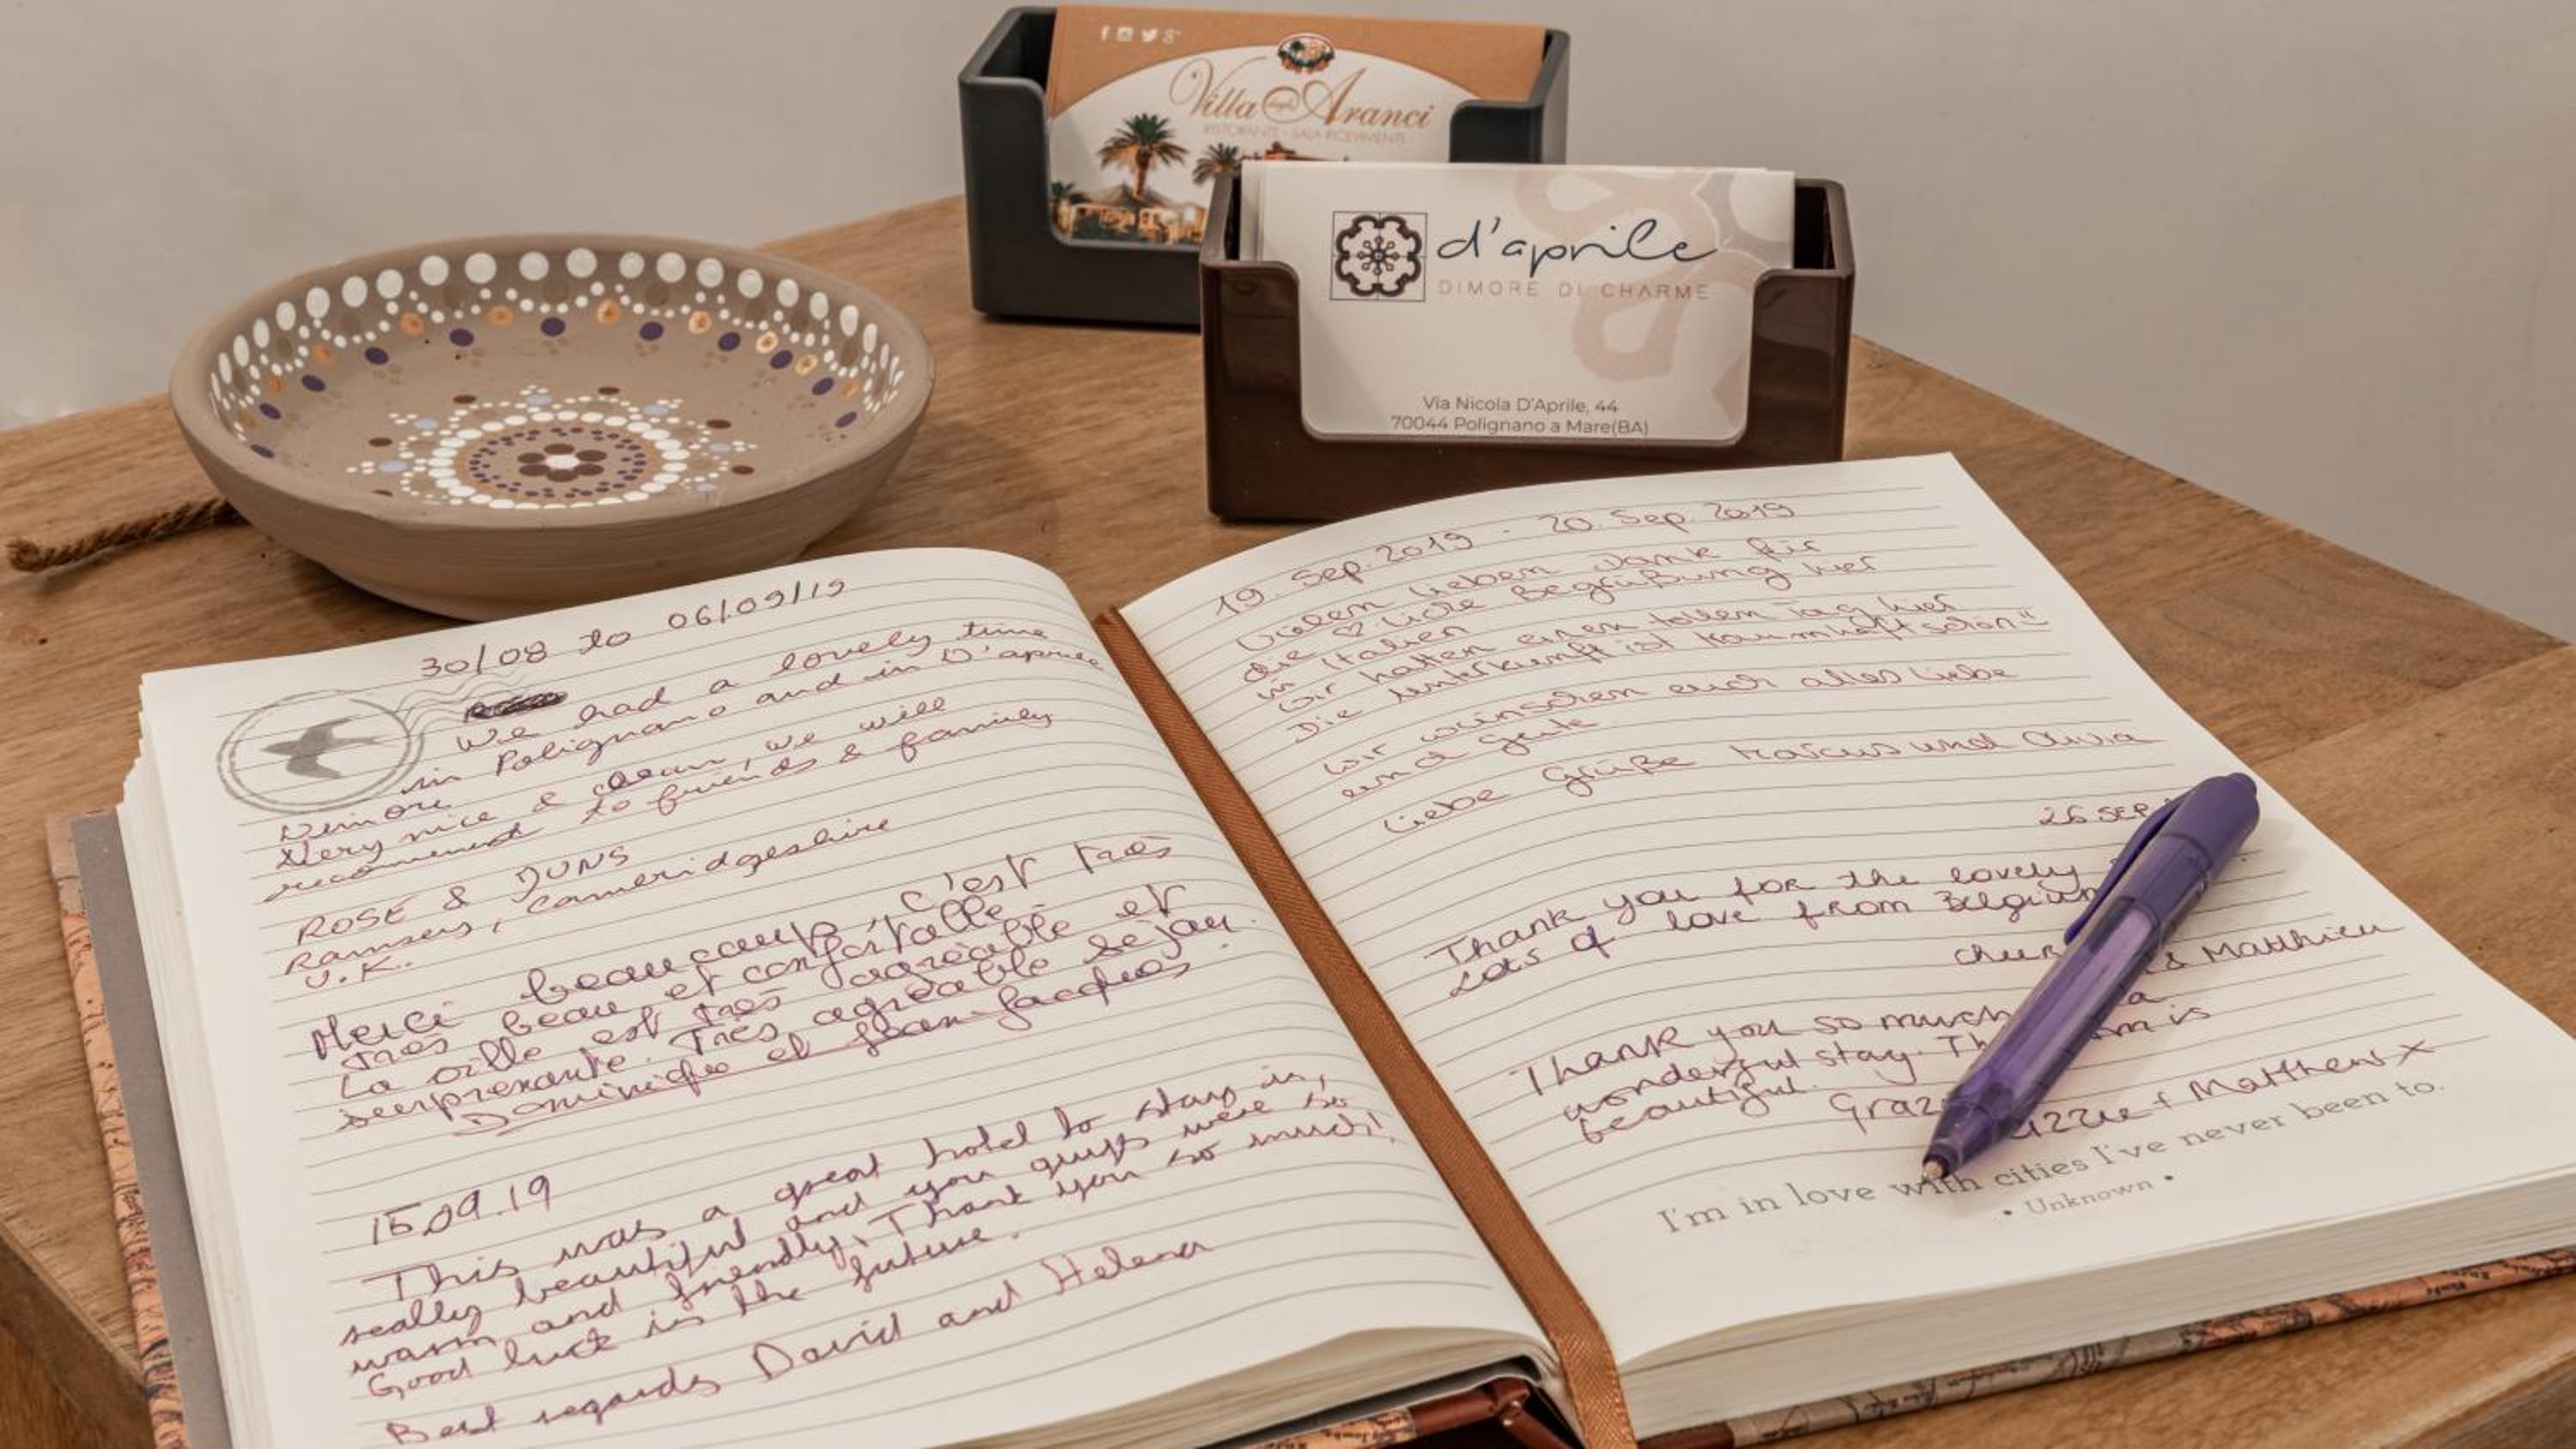 Villa degli Aranci
RISTORANTE - SALA RICEVIMENTI
d'aprile
DIMORE DI CHARME
Via Nicola D'Aprile, 44
70044 Polignano a Mare(BA)
30/08 to 06/09/19
We had a lovely time
in Polignano and in D'aprile
Dimore
Very nice & clean, we will
recommend to friends & family
ROSE &
Ramsey, Cambridgeshire
U.K.
Merci beaucoup, c'est très
très beau et confortable.
La ville est très agréable et
surprenante. Très agréable séjour.
Dominique et Jean-Jacques
15.09.19
This was a great hotel to stay in,
really beautiful and you guys were so
warm and friendly. Thank you so much!
Good luck in the future.
Best regards David and Helena
19. Sep. 2019 - 20. Sep. 2019
Vielen lieben Dank für
die liche Begrüßung hier
in Italien
Wir hatten einen tollen Tag hier
Die Unterkunft ist traumhaft schön!!
Wir wünschen euch alles Liebe
und Gute
Liebe Grüße Marcus und Olivia
26 SEP
Thank you for the lovely
Lots of love from Belgium
& Matthieu
Thank you so much a
wonderful stay. is
beautiful.
Matthew x
I'm in love with cities I've never been to.
• Unknown •